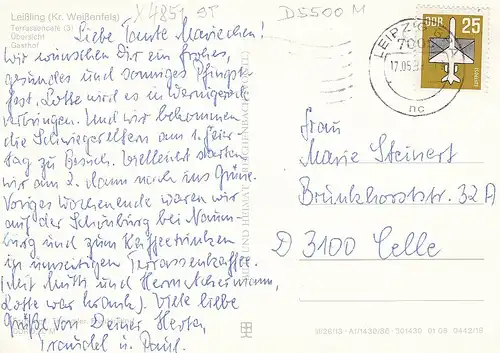 Leißling (Kr. Weißenfels)
Terrassencafé (3)
Übersicht
Gasthof
X 4851 ST
D 5500 M
Liebe Tante Mariechen!
Wir wünschen Dir ein frohes,
gesundes und sonniges Pfingst-
fest. Lotte wird es in Wernigerode
verbringen. Und wir bekommen
die Schwiegereltern am 1. Feier-
tag zu Besuch. Vielleicht starten
wir am 2. dann noch ins Grüne.
Voriges Wochenende waren wir
auf der Schönburg bei Naum-
burg und zum Kaffeetrinken
im umseitigen Terrassenkaffee.
(Mit Mutti und Herrn Achermann,
Lotte war krank). Viele liebe
Grüße von Deiner Herta,
Traudel u. Paul.
BILD UND HEIMAT REICHENBACH
LEIPZIG
17.05.8
nc
DDR
25
Frau
Marie Steinert
Brunkhorststr. 32 A
D 3100 Celle
III/26/13 · A1/1430/86 · 301430 01 03 0442/18